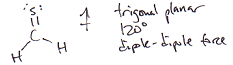 :S:
C
H H
trigonal planar
120°
dipole-dipole force